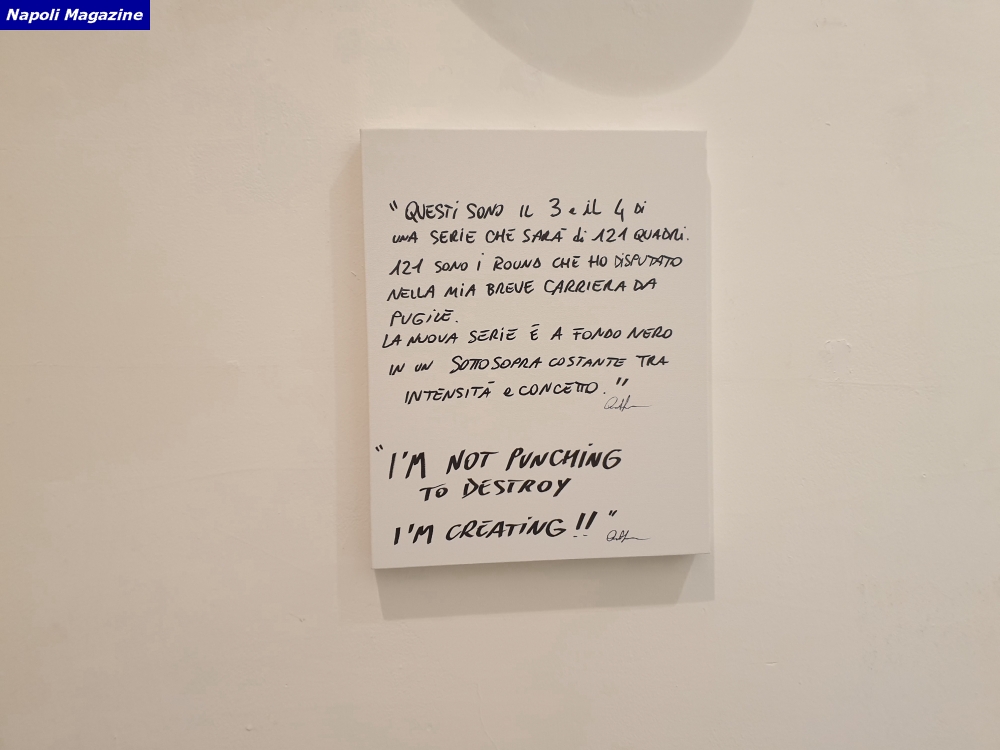 Napoli Magazine
" QUESTi SONO IL 3 e iL 4 Di
UNA SERIE CHE SARÀ di 121 QUADRi.
121 SONO i ROUND CHE HO DISPUTATO
NELLA MIA BREVE CARRIERA DA
PUGiLE.
LA NUOVA SERiE È A FONDO NERO
IN UN SOTTOSOPRA COSTANTE TRA
INTENSITÀ e CONCETTO. "
"I'M NOT PUNCHiNG
TO DESTROY
I'M CREATiNG !! "